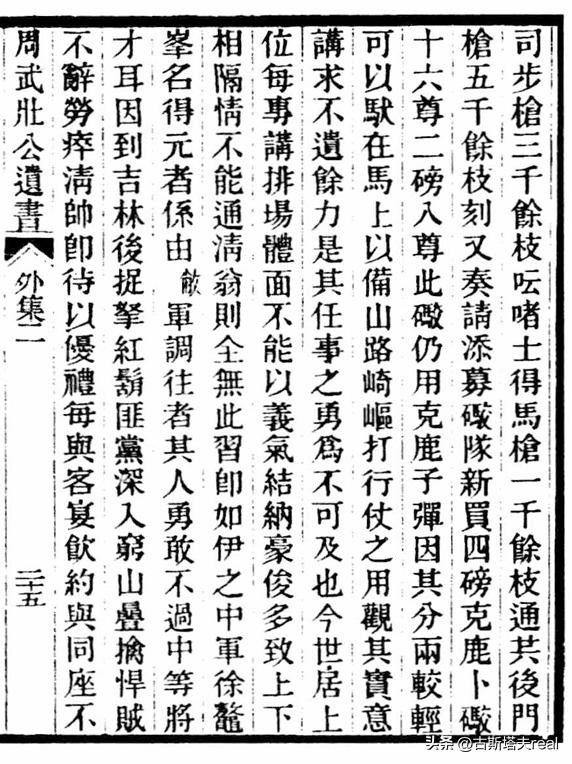 司步槍三千餘枝呍啫士得馬槍一千餘枝通共後門
槍五千餘枝刻又奏請添募礮隊新買四磅克鹿卜礮
十六尊二磅八尊此礮仍用克鹿子彈因其分兩較輕
可以馱在馬上以備山路崎嶇打行仗之用觀其實意
講求不遺餘力是其任事之勇爲不可及也今世居上
位每專講排場體面不能以義氣結納豪俊多致上下
相隔情不能通淸翁則全無此習卽如伊之中軍徐鼇
峯名得元者係由敝軍調往者其人勇敢不過中等將
才耳因到吉林後捉拏紅鬍匪黨深入窮山疊擒悍賊
不辭勞瘁淸帥卽待以優禮每與客宴飮約與同座不
周武壯公遺書 外集二 二十五
头条 @古斯塔夫real